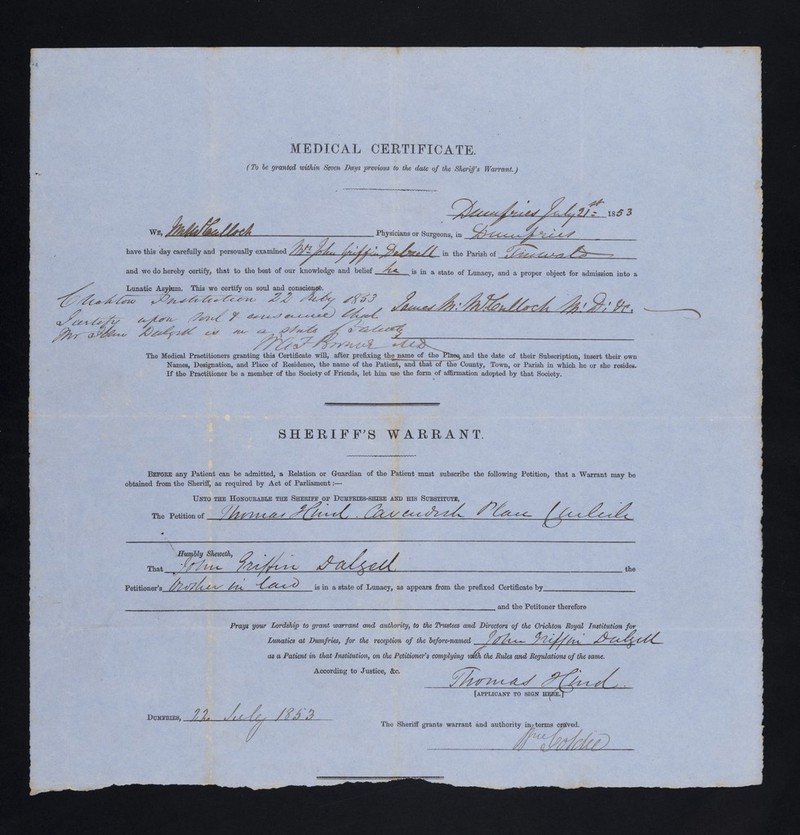 MEDICAL CERTIFICATE.
(To be granted within Seven Days previous to the date of the Sheriff's Warrant.)
Dumfries July 21st 1853
WE, Physicians or Surgeons, in Dumfries
have this day carefully and personally examined Mr. John Griffin Dalzell in the Parish of
and we do hereby certify, that to the best of our knowledge and belief he is in a state of Lunacy, and a proper object for admission into a
Lunatic Asylum. This we certify on soul and conscience.
James M: McCulloch M: D: &c.
Crichton Institution 22 July 1853
I certify upon soul & conscience that
Mr John Dalzell is in a state of
The Medical Practitioners granting this Certificate will, after prefixing the name of the Place, and the date of their Subscription, insert their own
Names, Designation, and Place of Residence, the name of the Patient, and that of the County, Town, or Parish in which he or she resides.
If the Practitioner be a member of the Society of Friends, let him use the form of affirmation adopted by that Society.
SHERIFF'S WARRANT.
BEFORE any Patient can be admitted, a Relation or Guardian of the Patient must subscribe the following Petition, that a Warrant may be
obtained from the Sheriff, as required by Act of Parliament:—
UNTO THE HONOURABLE THE SHERIFF OF DUMFRIES-SHIRE AND HIS SUBSTITUTE,
The Petition of Thomas Hind Cavendish Place Carlisle
Humbly Sheweth,
That John Griffin Dalzell the
Petitioner's Brother in Law is in a state of Lunacy, as appears from the prefixed Certificate by
and the Petitoner therefore
Prays your Lordship to grant warrant and authority, to the Trustees and Directors of the Crichton Royal Institution for
Lunatics at Dumfries, for the reception of the before-named John Griffin Dalzell
as a Patient in that Institution, on the Petitioner's complying with the Rules and Regulations of the same.
According to Justice, &c.
Thomas Hind
[APPLICANT TO SIGN HERE.]
DUMFRIES, 22 July 1853
The Sheriff grants warrant and authority in terms craved.